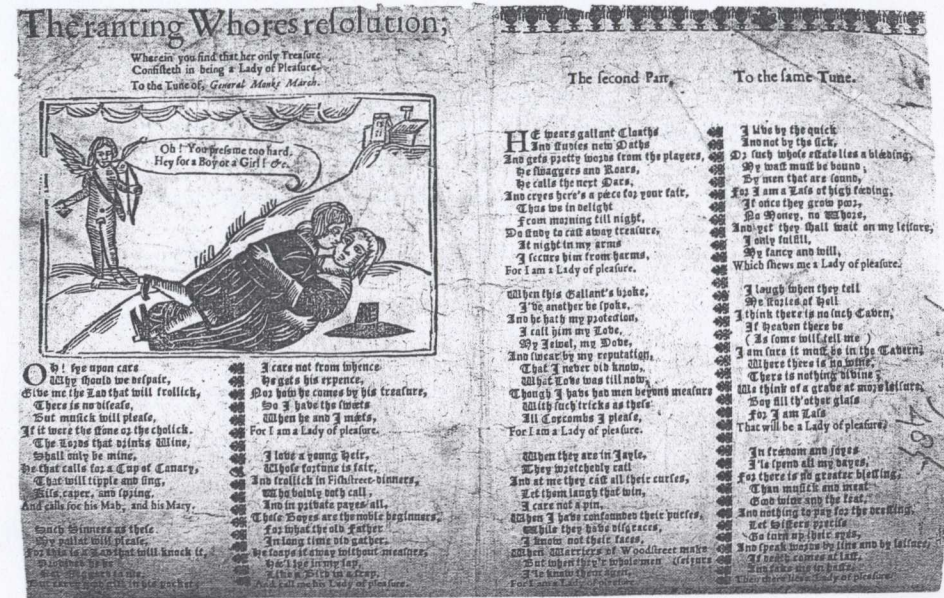 The ranting Whores resolution;
Wherein you find that her only Treasure
Consisteth in being a Lady of Pleasure.
To the Tune of, General Monks March.
Oh! You press me too hard,
Hey for a Boy or a Girl! &c.
OH! fye upon care
Why should we despair,
Give me the Lad that will frollick,
There is no disease,
But musick will please,
If it were the stone or the chollick.
The Lords that drinks Wine,
Shall only be mine,
He that calls for a Cup of Canary,
That will tipple and sing,
Kiss, caper, and spring,
And calls for his Mab, and his Mary.
Such Sinners as these
My pallat will please,
For this is a Lad that will knock it,
in his pocket
I cares not from whence
He gets his expence,
Nor how he comes by his treasure,
So I have the sweets
When he and I meets,
For I am a Lady of pleasure.
I love a young Heir,
Whose fortune is fair,
And frollick in Fishstreet-dinners,
Who boldly doth call,
And in private payes all,
These Boyes are the noble beginners,
For what the old Father
In long time did gather,
He soaps it away without measure,
He'l lye in my lap,
Like a Bird in a trap,
And call me his Lady of pleasure.
The second Part, To the same Tune.
HE wears gallant Cloaths
And studies new Oaths
And gets pretty words from the players,
He swaggers and Roars,
He calls the next Oars,
And cryes here's a piece for your fair,
Thus we in delight
From morning till night,
Do study to cast away treasure,
At night in my arms
I secure him from harms,
For I am a Lady of pleasure.
When this Gallant's broke,
I've another be spoke,
And he hath my protection,
I call him my Love,
My Jewel, my Dove,
And swear by my reputation,
That I never did know,
What Love was till now,
Though I have had men beyond measure
With such tricks as these
All Coxcombs I please,
For I am a Lady of pleasure.
When they are in Jayle,
They wretchedly rail
And at me they cast all their curses,
Let them laugh that win,
I care not a pin,
When I have confounded their purses,
While they have disgraces,
I know not their faces,
When Warriers of Woodstreet make seizure
But when they'r whole men
I'le know them agen,
For I am a Lady of pleasure
I live by the quick
And not by the sick,
Or such whose estate lies a bleeding,
My wast must be bound,
By men that are sound,
For I am a Lass of high feeding,
If once they grow poor,
No Money, no Whore,
And yet they shall wait on my leisure,
I only fulfill,
My fancy and will,
Which shews me a Lady of pleasure.
I laugh when they tell
Me stories of Hell
I think there is no such Cavern,
If Heaven there be
(As some will tell me)
I am sure it must be in the Tavern;
Where there is no wine,
There is nothing divine;
We think of a grave at more leisure,
Boy fill th'other glass
For I am Lass
That will be a Lady of pleasure.
In freedom and joyes
I'le spend all my dayes,
For there is no greater blessing,
Than musick and meat
Good wine and the feat,
And nothing to pay for the dressing,
Let Sisters precise
Go turn up their eyes,
And speak words by line and by leisure,
If death comes at last,
And take me in haste
Then there lies a Lady of pleasure.